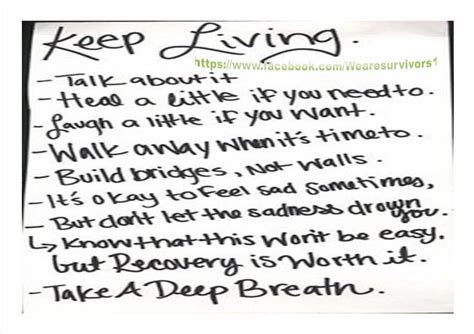 Keep Living.
https://www.facebook.com/Wearesurvivors1
- Talk about it
- Heal a little if you need to.
- Laugh a little if you want.
- Walk away when it's time to.
- Build bridges, Not walls.
- It's okay to feel sad sometimes,
- But don't let the sadness drown you.
↳ Know that this won't be easy.
but Recovery is Worth it.
- Take A Deep Breath.